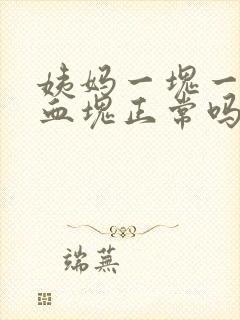 姨妈一块一
血块正常吗
端蕪